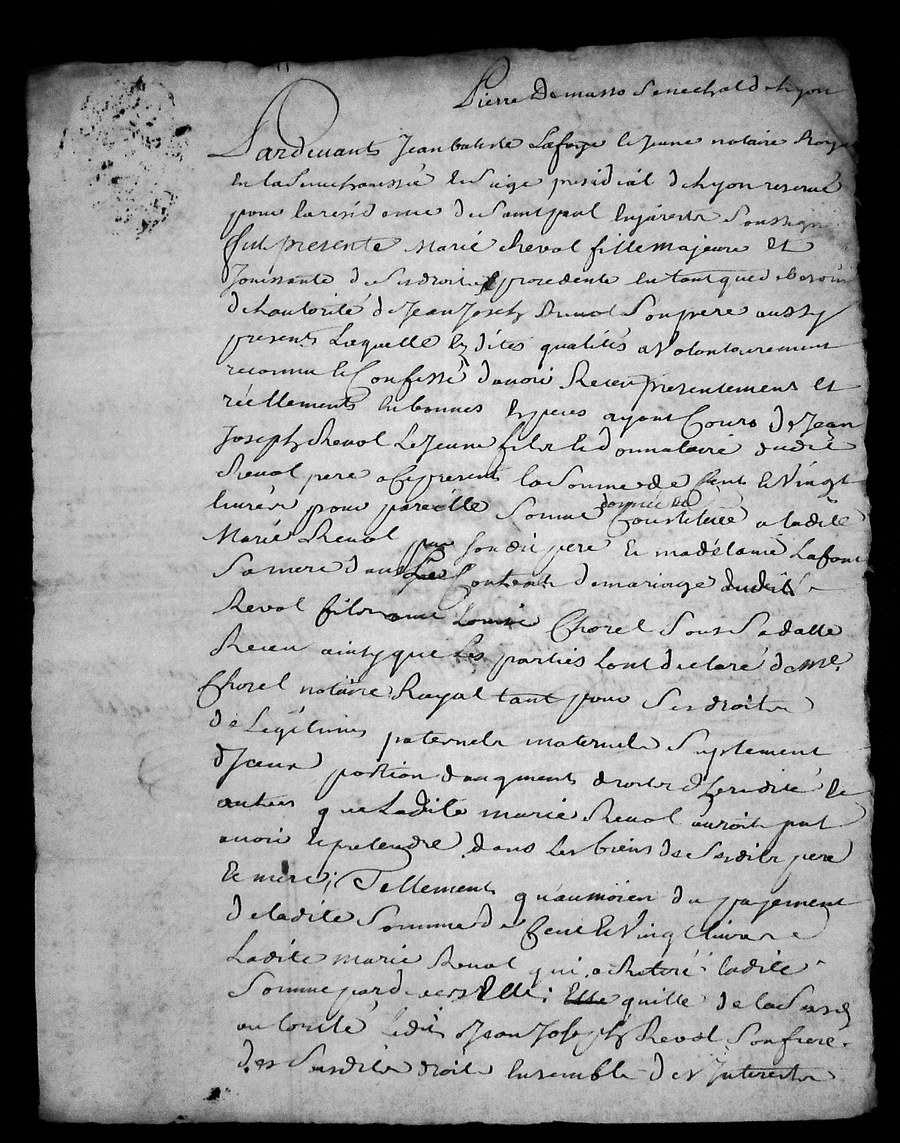 Pierre Demasso Senechal de Lyon
Pardevants Jean batiste Lafaye le Jeune notaire Roya
En la Senechaussée le Siege presidial de Lyon reservé
pour la residence de Saint paul En Jarest Soussigné
fut presente Marie Reval fille majeure et
Jouissante de Ses droits procedente en tant que de besoin
de Lautorité de Jean Joseph Reval Son pere aussy
present Laquelle Es dites qualités a volontairement
reconnu et Confessé davoir Receu presentement et
réellements en bonnes Especes ayant Cours de Jean
Joseph Reval Le Jeune fils et donnataire dudit
Reval pere asf present la Somme de Cent et Vingt
livres pour pareille Somme donnée et Constituée a ladite
Marie Reval par Son dit pere Et madelaine Lafont
Sa mere dans Le Contrat de mariage dudit
Reval fils avec Louise Chorel Sous Sa datte
Receu ainsy que les parties lont declaré de Me
Chorel notaire Royal tant pour Ses droits
de Legitimes paternels maternels Suplement
dyceux portion daugment droits dheredité Et
autres que Ladite marie Reval auroit put
avoir et pretendre dans les biens de Sesdits pere
Et mere; Tellements quau moien du payement
de ladite Somme de Cent et Vingt livres
Ladite marie Reval qui a Retiré ladite
Somme pardevers Elle; Elle quitte de la Susd
autorité ledit Jean Joseph Reval Son frere
des Susdits droits Ensemble des Interests